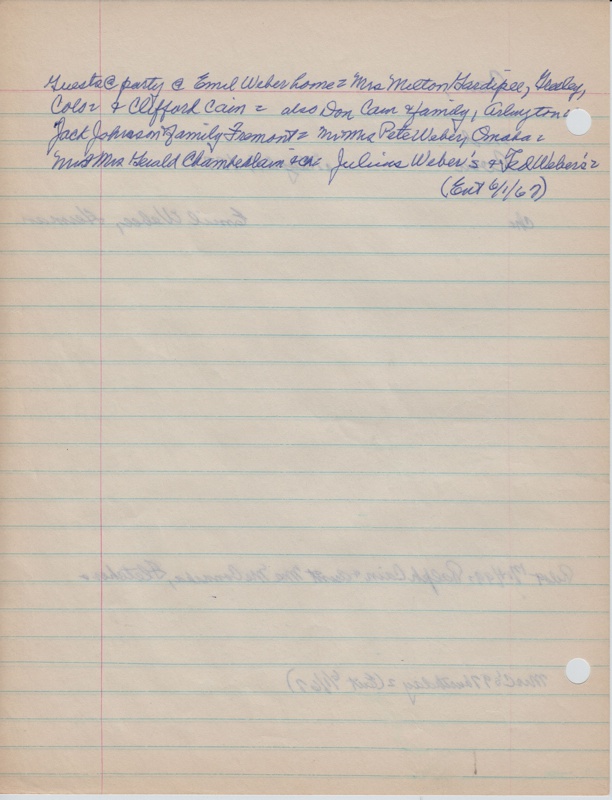 Guests @ party @ Emil Weber home = Mrs Milton Hardipee, Greeley,
Colo = & Clifford Cain = also Don Cain & family, Arlington =
Jack Johnson & family Fremont = Mr Mrs Pete Weber, Omaha =
Mr & Mrs Gerald Chamberlain & ch Julius Weber's & Ted Weber's =
(Ent 6/1/67)